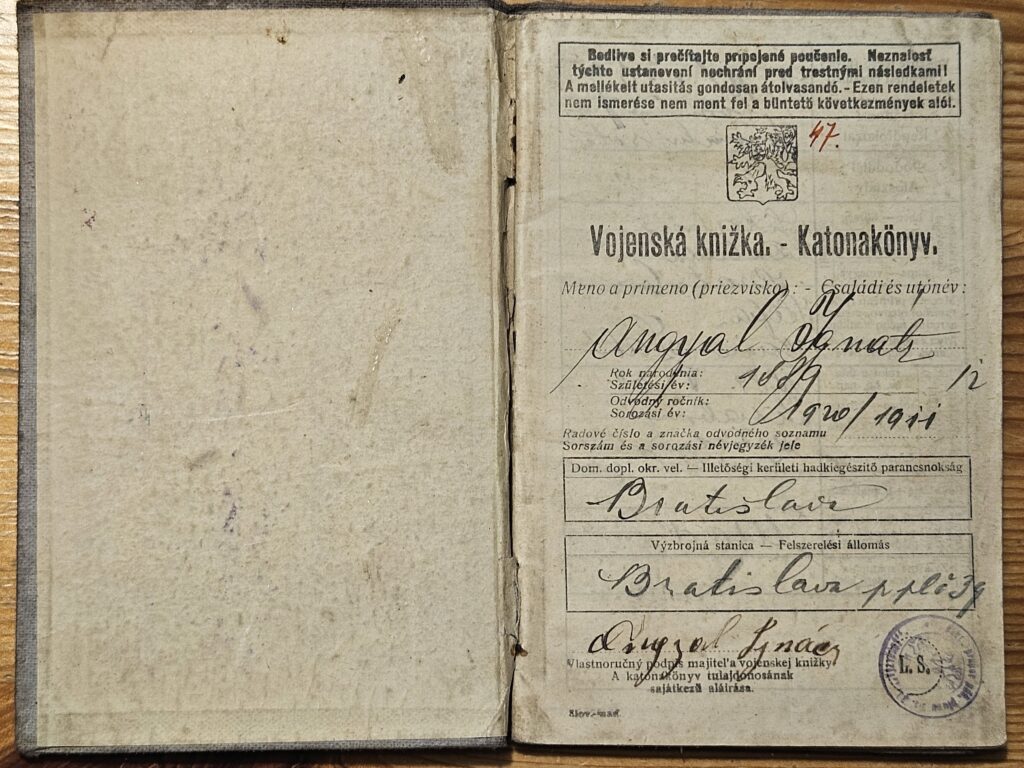 Bedlive si prečítajte pripojené poučenie. Neznalosť
týchto ustanovení nechráni pred trestnými následkami!
A mellékelt utasitás gondosan átolvasandó. - Ezen rendeletek
nem ismerése nem ment fel a büntető következmények alól.
47.
Vojenská knižka. - Katonakönyv.
Meno a prímeno (priezvisko): - Családi és utónév:
Angyal Ignatz
Rok narodenia:
Születési év: 1889
Odvodný ročník:
Sorozási év: 1920/1911
Radové číslo a značka odvodného soznamu
Sorszám és a sorozási névjegyzék jele
Dom. dopl. okr. vel. — Illetőségi kerületi hadkiegészítő parancsnokság
Bratislava
Výzbrojná stanica — Felszerelési állomás
Bratislava p. pl. č 39
Angyal Ignác
Vlastnoručný podpis majiteľa vojenskej knižky
A katonakönyv tulajdonosának
sajátkezű aláírása.
L. S.
Slov.-maď.